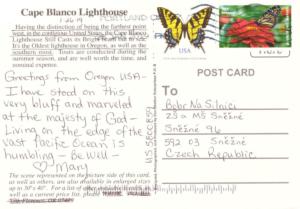 Cape Blanco Lighthouse
1-26-19
PORTLAND
Having the distinction of being the furthest point
west, in the contiguous United States, the Cape Blanco
Lighthouse Still Casts its Bright beam out to sea.
It's the Oldest lighthouse in Oregon, as well as the
southern most. Tours are conducted during the
summer season, and are well worth the time, and
nominal expense.
USA
Greetings from Oregon USA-
I have stood on this
very bluff and marveled
at the majesty of God-
Living on the edge of the
vast pacific Ocean is
humbling - Be well -
♡ Mary
The scene represented on the picture side of this card,
as well as others, are also available in enlarged sizes
up to 30" x 40". For a list of
US5800859
POST CARD
TO
Bobr Na Silnici
ZS a MŠ Sněžné
Sněžné 96
592 03 Sněžné
Czech Republic